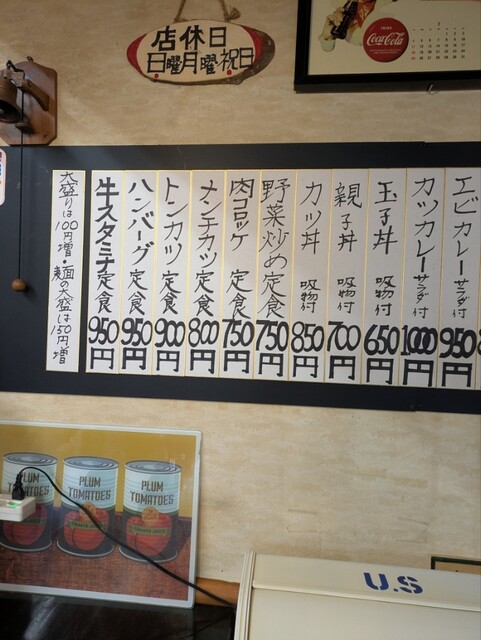 店休日
日曜月曜・祝日
Coca-Cola
大盛りは100円増・麺の大盛は150円増
牛スタミナ定食 950円
ハンバーグ定食 950円
トンカツ定食 900円
メンチカツ定食 800円
肉コロッケ定食 750円
野菜炒め定食 750円
カツ丼 吸物付 850円
親子丼 吸物付 700円
玉子丼 吸物付 650円
カツカレーサラダ付 1000円
エビカレーサラダ付 950円
PLUM TOMATOES
PLUM TOMATOES
PLUM TOMATOES
U.S